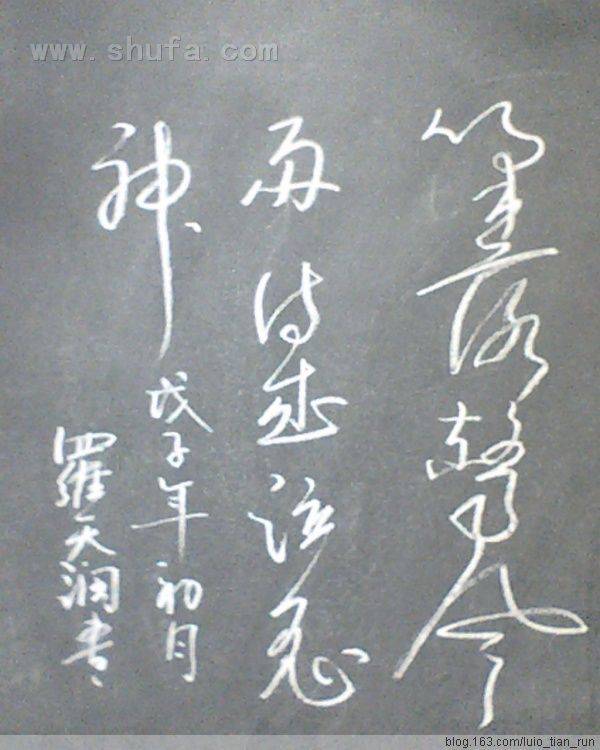 www.shufa.com
筆落驚風
雨詩成泣鬼
神
戊子年初月
羅天润書
blog.163.com/luio_tian_run